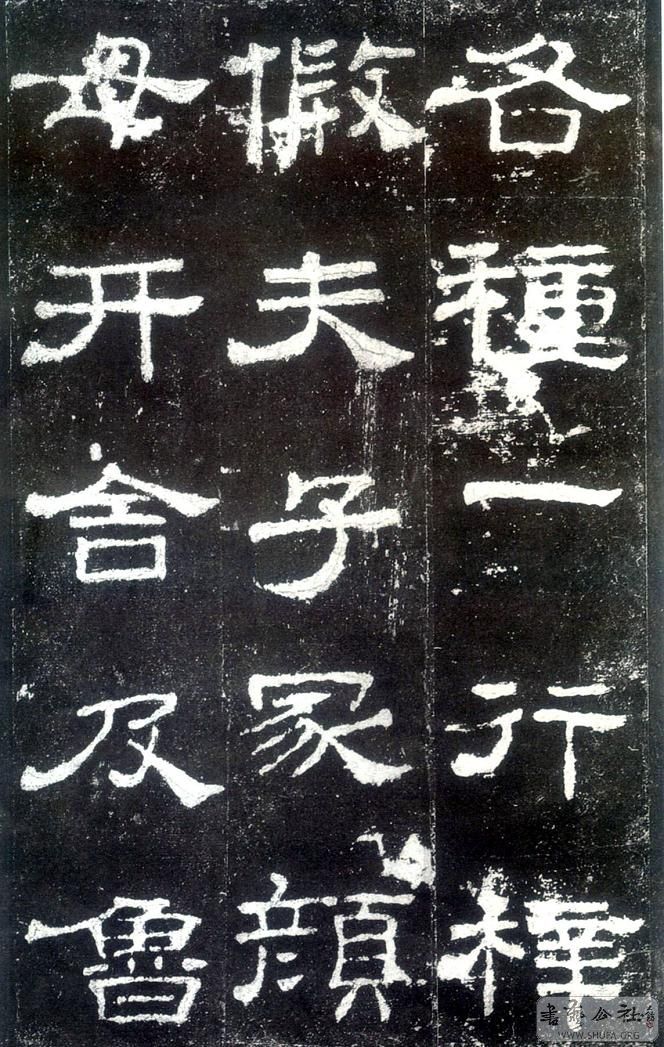 各種一行梓
假夫子冢顏
母开舍及魯
書法公社
WWW.SHUFA.ORG